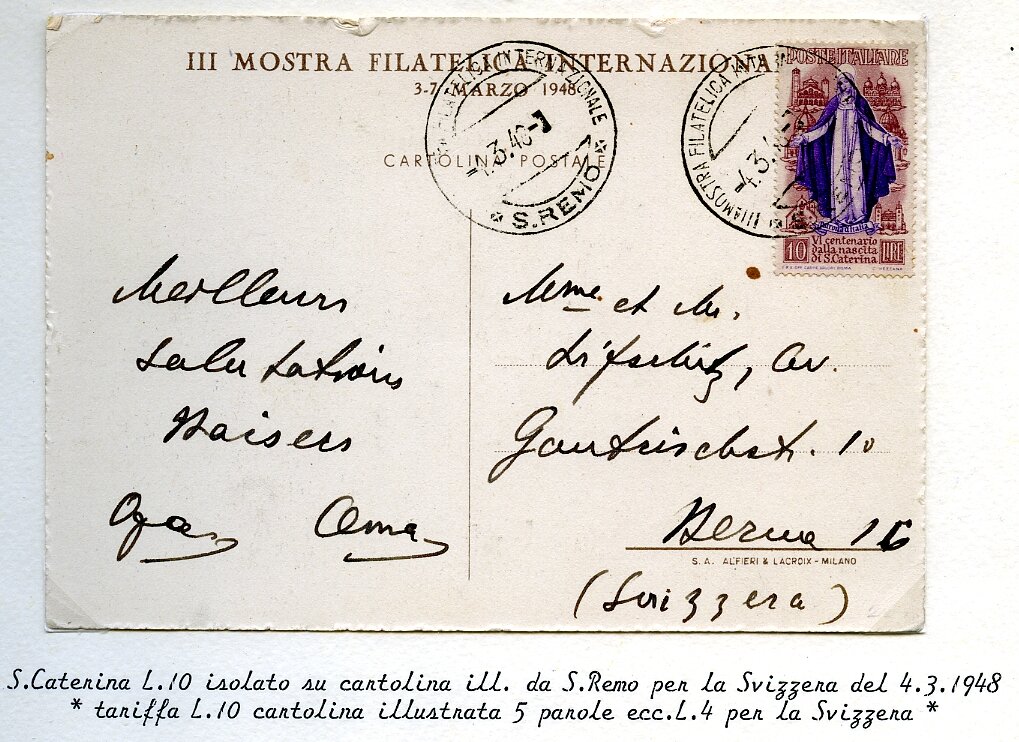 III MOSTRA FILATELICA INTERNAZIONALE
3-7 MARZO 1948
CARTOLINA POSTALE
FILATELICA INTERNAZIONALE
4.3.48-7
S.REMO
III MOSTRA FILATELICA INTER
4.3.4
S
POSTE ITALIANE
10 LIRE
VI centenario
dalla nascita
di S.Caterina
Meilleurs
salutations
Baisers
Opa Oma
Mme et Mr.
Lifschitz, Av.
Gantrischstr. 10
Berna 16
S. A. ALFIERI & LACROIX - MILANO
(Svizzera)
S.Caterina L.10 isolato su cartolina ill. da S.Remo per la Svizzera del 4.3.1948
* tariffa L.10 cartolina illustrata 5 parole ecc.L.4 per la Svizzera *